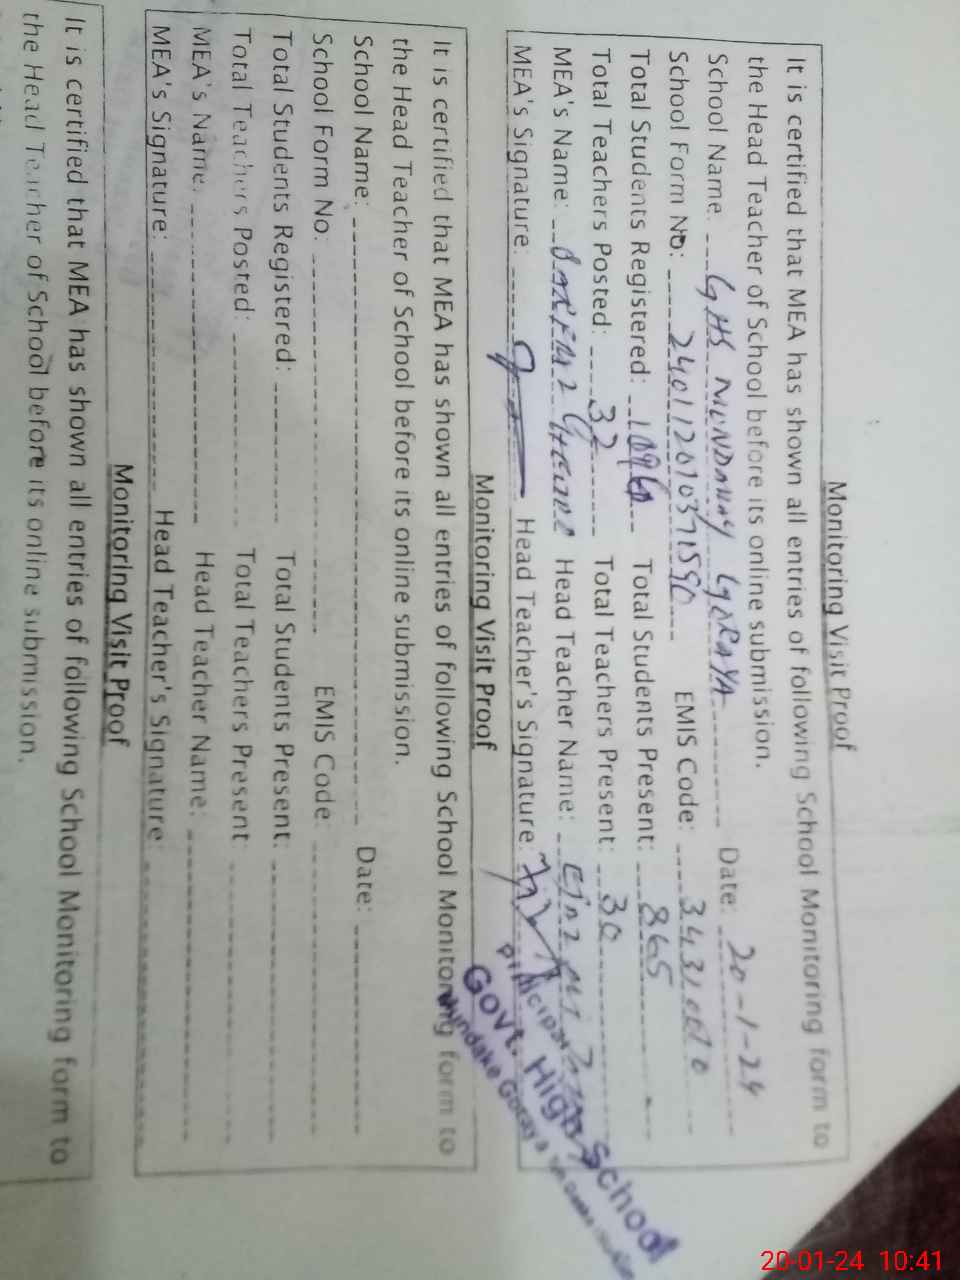 Monitoring Visit Proof
It is certified that MEA has shown all entries of following School Monitoring form to
the Head Teacher of School before its online submission.
School Name: GHS Date: 20-1-24
School Form No: EMIS Code:
Total Students Registered: Total Students Present: 865
Total Teachers Posted: 32 Total Teachers Present: 30
MEA's Name: Head Teacher Name:
MEA's Signature: Head Teacher's Signature:
Principal
Govt. High School
Mundake Goraya
Monitoring Visit Proof
It is certified that MEA has shown all entries of following School Monitoring form to
the Head Teacher of School before its online submission.
School Name: Date:
School Form No: EMIS Code:
Total Students Registered: Total Students Present:
Total Teachers Posted: Total Teachers Present
MEA's Name: Head Teacher Name:
MEA's Signature: Head Teacher's Signature:
Monitoring Visit Proof
It is certified that MEA has shown all entries of following School Monitoring form to
the Head Teacher of School before its online submission.
20-01-24 10:41